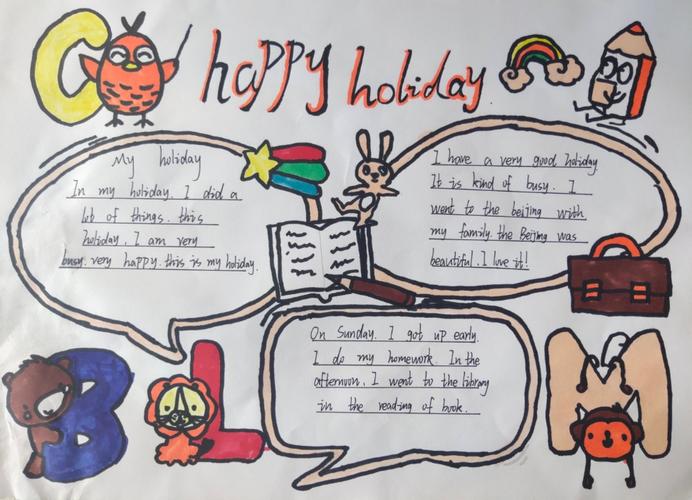 C
happy holiday.
My holiday
In my holiday. I did a
lot of things. this
holiday. I am very
busy. very happy. this is my holiday.
I have a very good holiday.
It is kind of busy. I
went to the beijing with
my family. the Beijing was
beautiful. I love it!
On Sunday. I got up early.
I do my homework. In the
afternoon, I went to the library
in the reading of book.
B
L
M